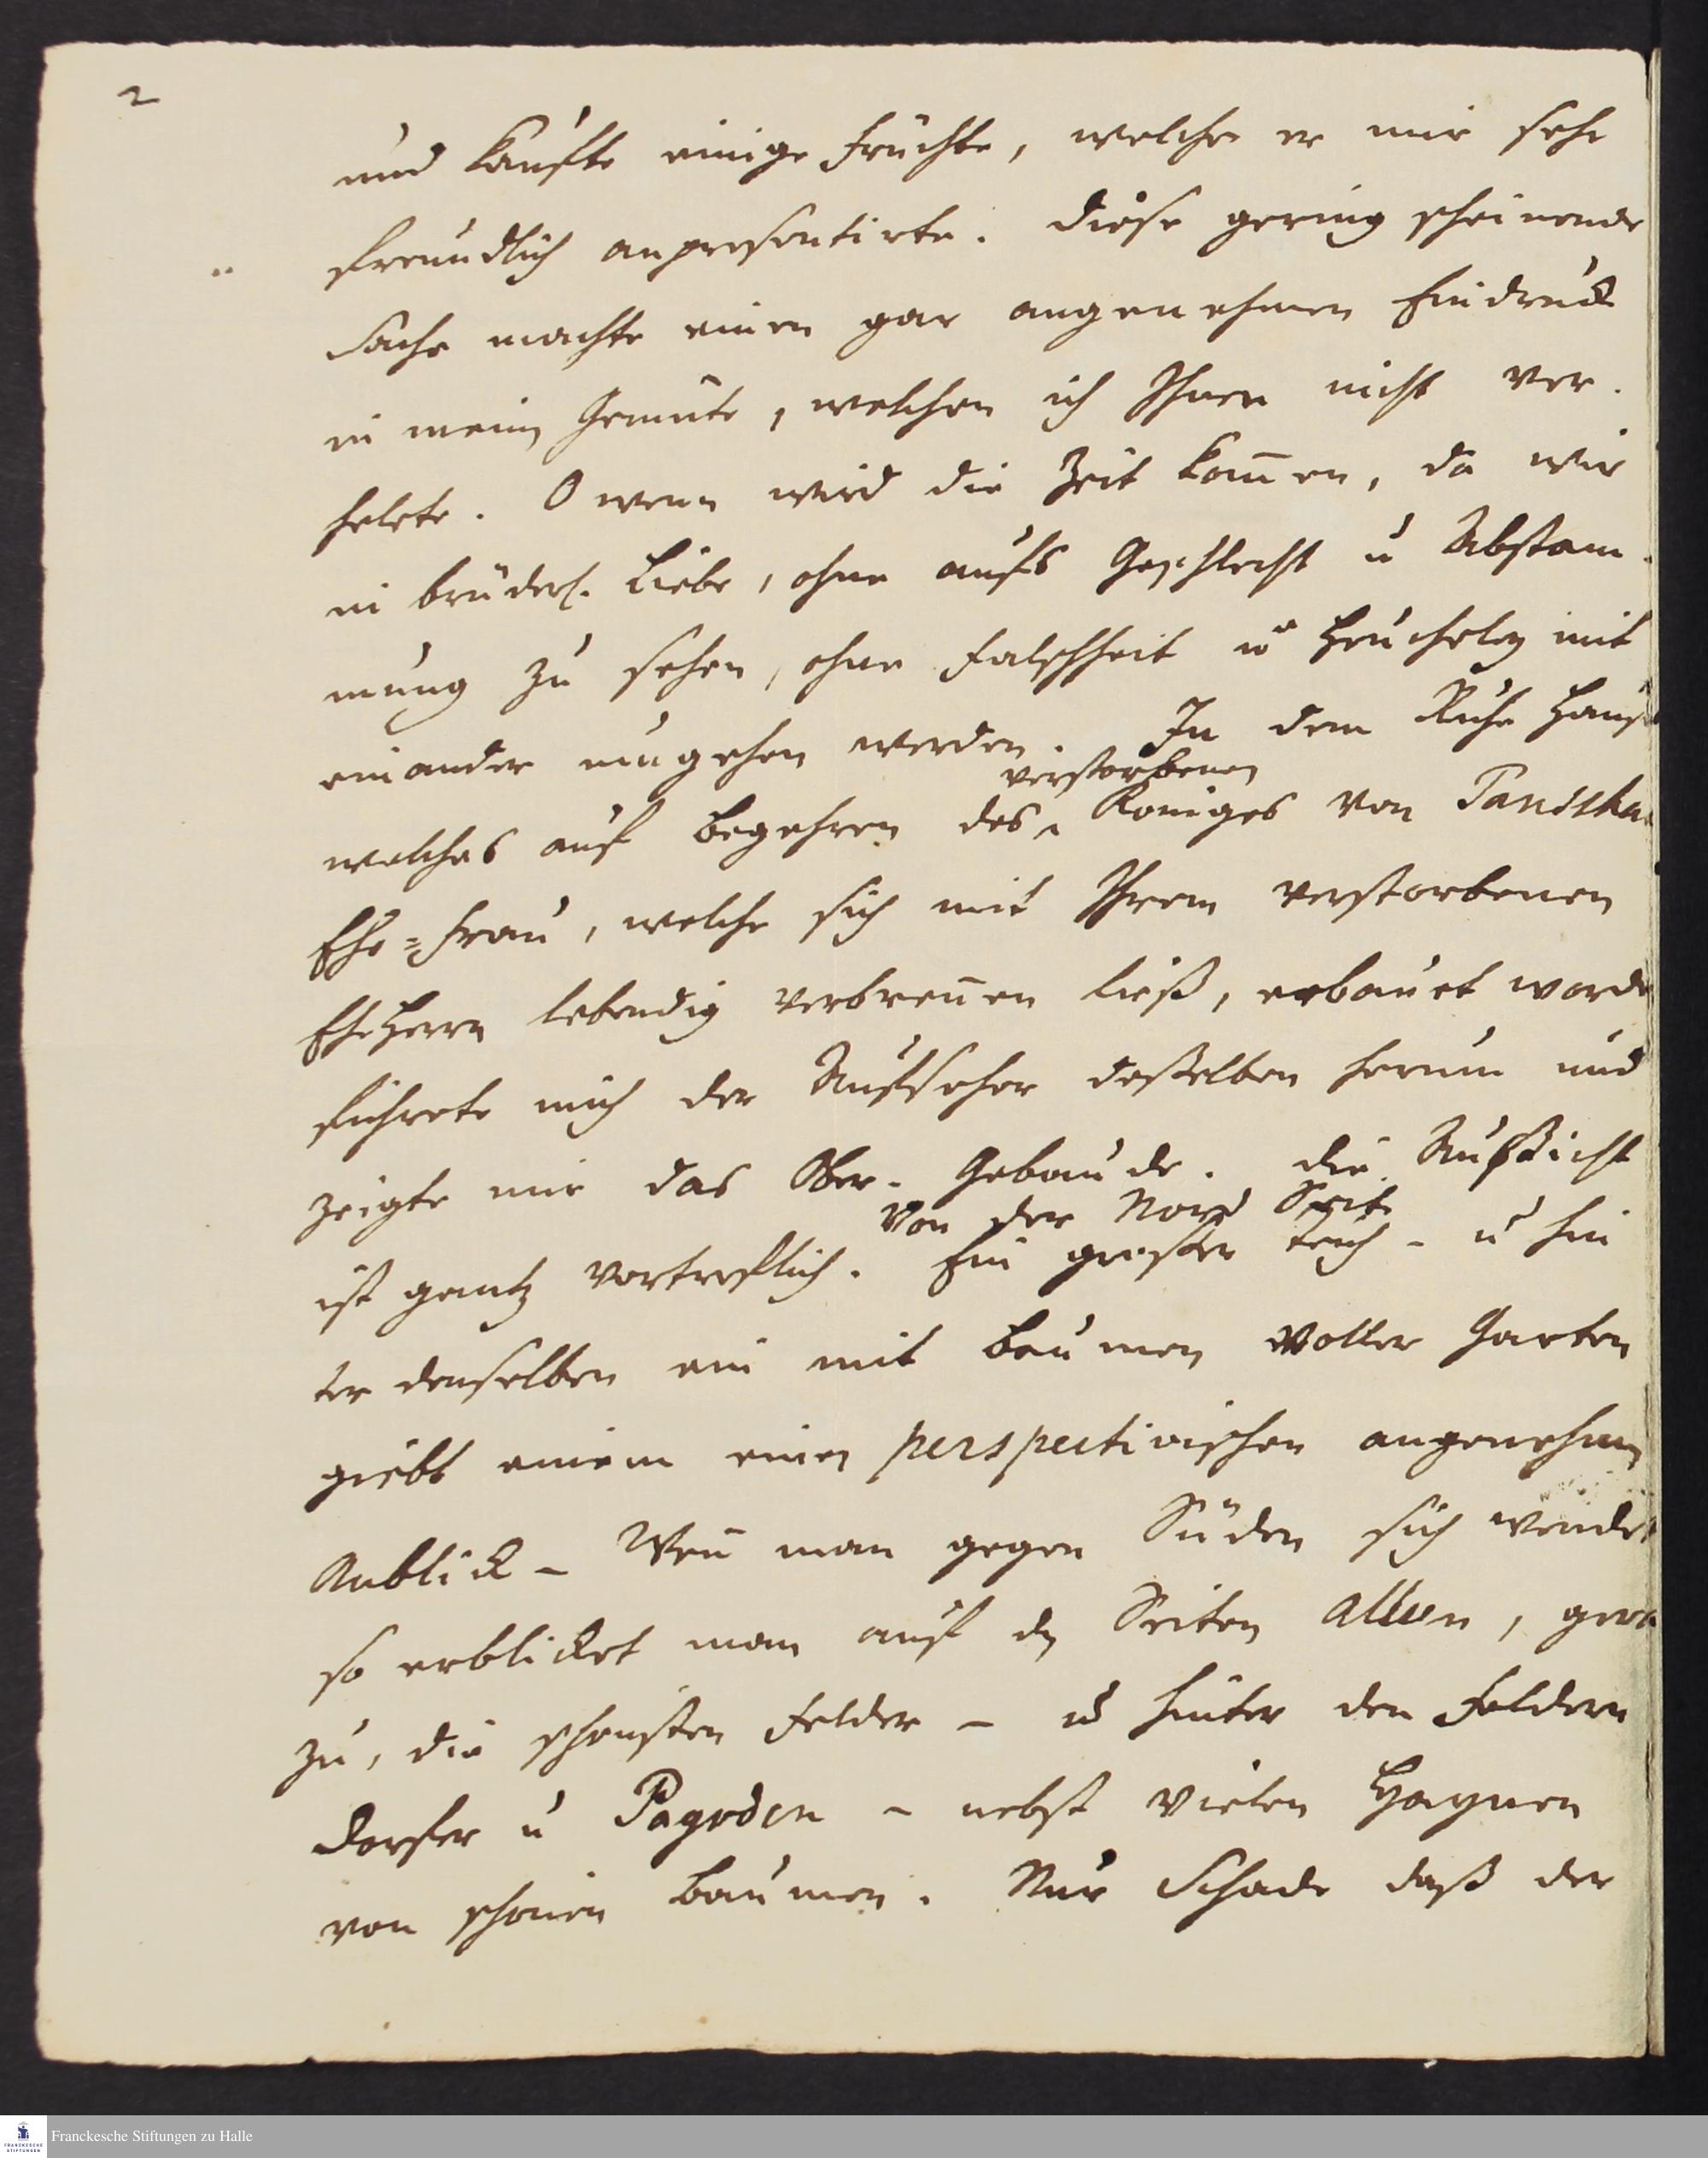 2
und kaufte einige Früchte, welche er mir sehr
freundlich anpresentirte. Diese gering scheinende
Sache machte einen gar angenehmen Eindruck
in mein Gemüte, welchen ich Ihnen nicht ver-
helete. O wenn wird die Zeit kom̄en, da wir
in brüderl. Liebe, ohne aufs Geschlecht u Abstam-
mung zu sehen, ohne Falschheit u Heucheley mit
einander umgehen werden. In dem Ruhe Hause
verstorbenen
welches auf Begehren des Koniges von
Ehe=Frau, welche sich mit Ihrem verstorbenen
EheHerrn lebendig verbren̄en ließ, erbauet worde
führete mich der Aufseher desselben herum und
zeigte mir das Ober-Gebaude. Die Aussicht
von der Nord Seite
ist gantz vortreflich. Ein grosser Teich - u hin
ter denselben ein mit Baumen voller Garten
giebt einem einen perspectivischen angenehmen
Anblick - Wen̄ man gegen Süden sich wendet
so erblicket man auf den Seiten Alleen, gera
zu, die schonsten Felder - u hinter den Feldern
Dorfer u Pagoden - nebst vielen Haynen
von schonen Baumen. Nur Schade daß der
Franckesche Stiftungen zu Halle
FRANCKESCHE
STIFTUNGEN